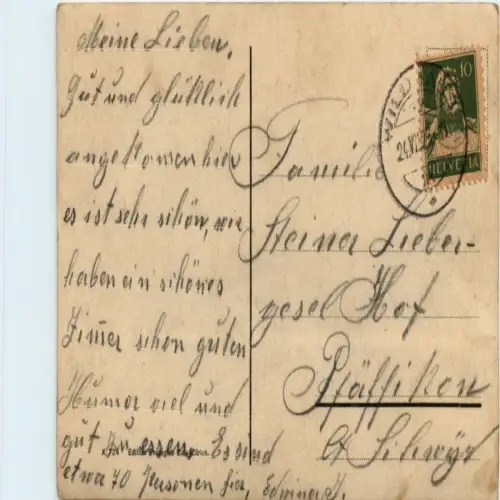 Meine Lieben,
Gut und glücklich
angekomen hier
es ist sehr schön, wir
haben ein schönes
Zim̅er schon guten
Humor viel und
gut zu essen. Es sind
etwa 70 Personen hier, Edwina J.
WILD
24.VI.25
10
HELVETIA
Familie
Steiner Lieber-
gesel Hof
Pfäffikon
Ct Schwyz